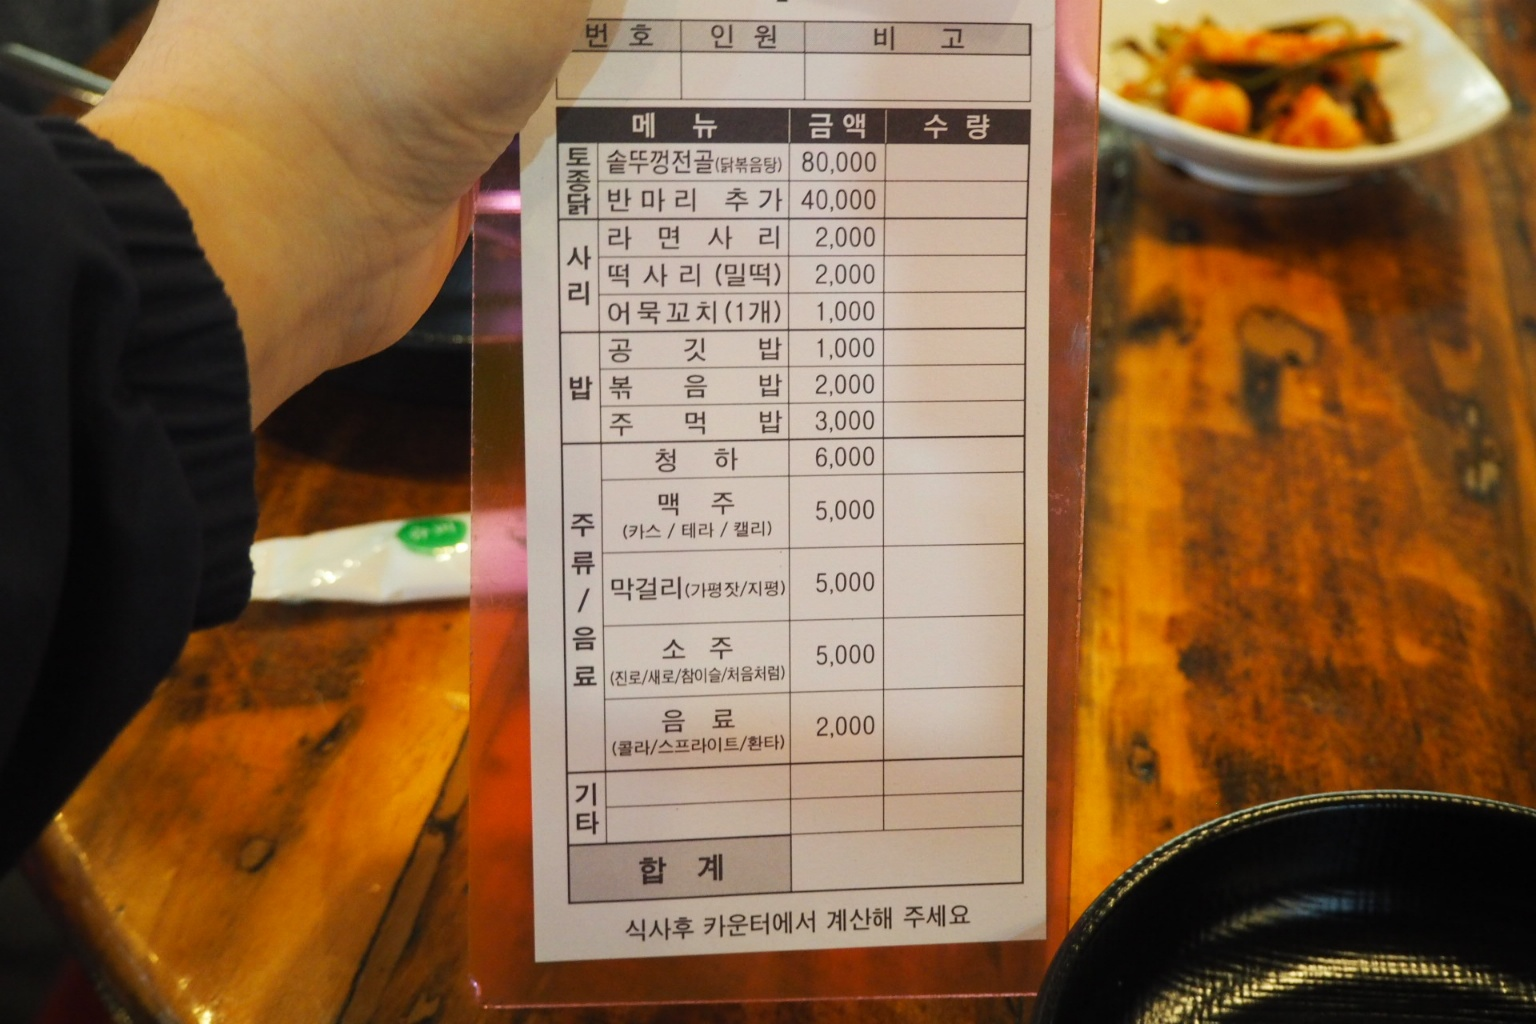 번 호 인 원 비 고
메 뉴 금 액 수 량
토종닭 솥뚜껑전골(닭볶음탕) 80,000
반 마 리 추 가 40,000
사리 라 면 사 리 2,000
떡 사 리 (밀떡) 2,000
어묵꼬치(1개) 1,000
밥 공 깃 밥 1,000
볶 음 밥 2,000
주 먹 밥 3,000
주류/음료 청 하 6,000
맥 주 5,000
(카스 / 테라 / 캘리)
막걸리(가평잣/지평) 5,000
소 주 5,000
(진로/새로/참이슬/처음처럼)
음 료 2,000
(콜라/스프라이트/환타)
기타
합 계
식사후 카운터에서 계산해 주세요